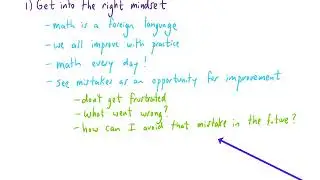 1) Get into the right mindset
- math is a foreign language
- we all improve with practice
- math every day!
- see mistakes as an opportunity for improvement
- don't get frustrated
- what went wrong?
- how can I avoid that mistake in the future?